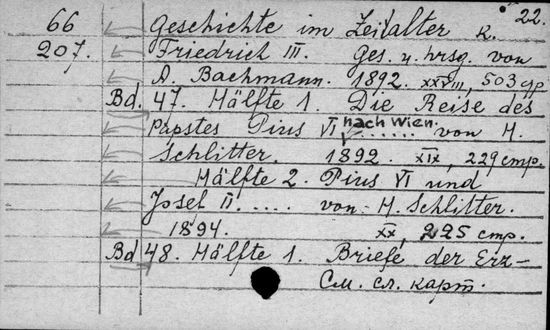 22.
66 Geschichte im Zeitalter K.
207. Friedrich III. Ges. u. hrsg. von
A. Bachmann. 1892. XXVIII, 503 cmp
Bd. 47. Hälfte 1. Die Reise des
Papstes Pius VI nach Wien. ...... von H.
Schlitter. 1892. XIX, 229 cmp.
Hälfte 2. Pius VI und
Josef II. ..... von H. Schlitter.
1894. XX, 225 cmp.
Bd 48. Hälfte 1. Briefe der Erz-
См. сл. карт.